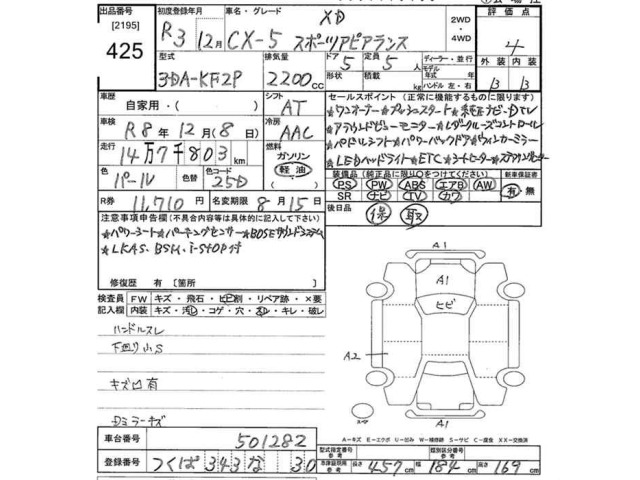 出品番号 初度登録年月 車名・グレード XD 2WD 評価点
[2195] R3 12月 CX-5 スポーツアピアランス ・4WD 4
425 型式 排気量 ドア 定員 ディーラー・並行 外装 内装
3DA-KF2P 2200cc 5 5人 モデル 年式 年
形状 積載 kg ハンドル 左・右 B B
車歴 自家用・( ) シフト AT セールスポイント (正常に機能するものに限ります)
車検 R8年12月(8)日 冷房 AAC ☆ワンオーナー☆プッシュスタート☆純正ナビ・DTV
走行 14万7千803km 燃料 ☆アラウンドビューモニター☆レーダークルーズコントロール
ガソリン ☆パドルシフト☆パワーバックドア☆ウィンカーミラー
軽油 ☆LEDヘッドライト☆ETC☆シートヒーター☆ステアリングヒーター
色 パール 色替 色コード 25D
装備品 (純正品に限り○をつけてください) 新車保証書
PS PW ABS エアB AW 有・無
R券 11,710円 名変期限 8月15日 SR ナビ TV カワ
注意事項申告欄(不具合内容等は具体的に記入して下さい) 後日品 保 取
☆パワーシート☆パーキングセンサー☆BOSEサウンドシステム
☆LKAS、BSM、i-STOP付
修復歴 有 [箇所 ]
検査員 FW キズ・飛石・ヒビ割・リペア跡・×要
記入欄 内装 キズ・汚レ・コゲ・穴・スレ・キレ・破レ
ハンドルスレ
下回り小S
キズ凹有
Dミラーキズ
A1
A1
ヒビ
A2
A1
A=キズ E=エクボ U=凹み W=補修跡 S=サビ C=腐食 XX=交換済
車台番号 501282
登録番号 つくば 343 な 30
型式指定番号 参考 類別区分番号 参考
長さ 457cm 幅 184cm 高さ 169cm